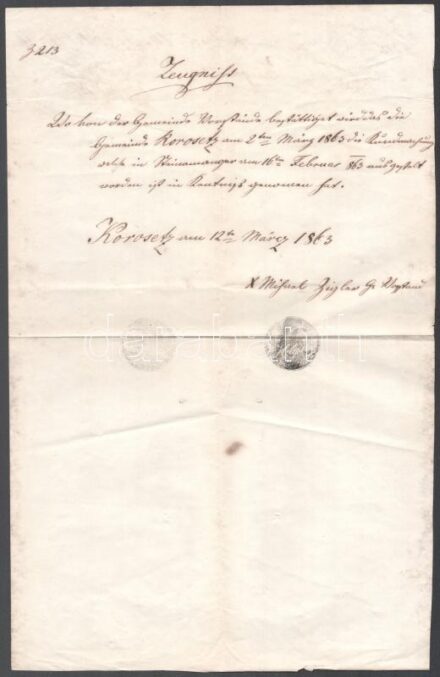 3213
Zeugniss
Wo von der Gemeinde Vorstände bestättiget wird das die
Gemeinde Korosetz am 2ten März 1863 die Kundmachung
welche in Steinamanger am 16ten Februar 863 ausgestelt
worden ist in Kentniss genomen hat.
Korosetz am 12te März 1863
X Michael Zigler Gr Vorstand
darabanth